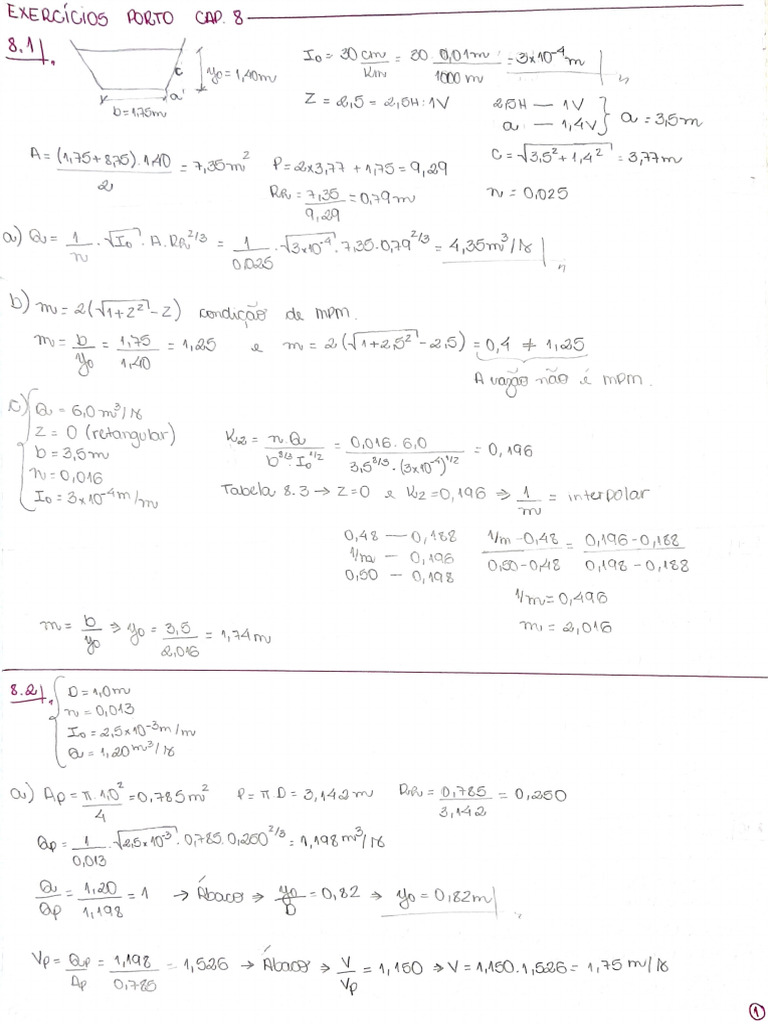 EXERCÍCIOS PORTO CAP. 8
8.1.
y₀ = 1,40m
c
a'
b = 1,75m
I₀ = 30 cm/Km = 30 . 0,01m/1000 m = 3×10⁻⁴ m
Z = 2,5 = 2,5H:1V
2,5H — 1V
a — 1,4V } a = 3,5 m
A = (1,75+8,75).1,40/2 = 7,35 m²
P = 2×3,77 + 1,75 = 9,29
C = √(3,5² + 1,4²) = 3,77m
RR = 7,35/9,29 = 0,79 m
n = 0,025
a) Q = 1/n . √I₀ . A . RR^2/3 = 1/0,025 . √(3×10⁻⁴) . 7,35 . 0,79^2/3 = 4,35 m³/s
b) m = 2(√(1+Z²) - Z) condição de MPM.
m = b/y₀ = 1,75/1,40 = 1,25 e m = 2(√(1+2,5²) - 2,5) = 0,4 ≠ 1,25
A vazão não é MPM.
c) { Q = 6,0 m³/s
Z = 0 (retangular)
b = 3,5m
n = 0,016
I₀ = 3×10⁻⁴ m/m
K₂ = n.Q/(b^8/3 . I₀^1/2) = 0,016 . 6,0/(3,5^8/3 . (3×10⁻⁴)^1/2) = 0,196
Tabela 8.3 → Z=0 e K₂ = 0,196 ⇒ 1/m = interpolar
0,48 — 0,188
1/m — 0,196
0,50 — 0,198
(1/m - 0,48)/(0,50 - 0,48) = (0,196 - 0,188)/(0,198 - 0,188)
1/m = 0,496
m = 2,016
m = b/y₀ ⇒ y₀ = 3,5/2,016 = 1,74 m
8.2. { D = 1,0m
n = 0,013
I₀ = 2,5×10⁻³ m/m
Q = 1,20 m³/s
a) Ap = π . 1,0²/4 = 0,785 m² P = π . D = 3,142 m RR = 0,785/3,142 = 0,250
Qp = 1/0,013 . √(2,5×10⁻³) . 0,785 . 0,250^2/3 = 1,198 m³/s
Q/Qp = 1,20/1,198 = 1 → Ábaco ⇒ y₀/D = 0,82 ⇒ y₀ = 0,82m
Vp = Qp/Ap = 1,198/0,785 = 1,526 → Ábaco ⇒ V/Vp = 1,150 ⇒ V = 1,150 . 1,526 = 1,75 m/s
1